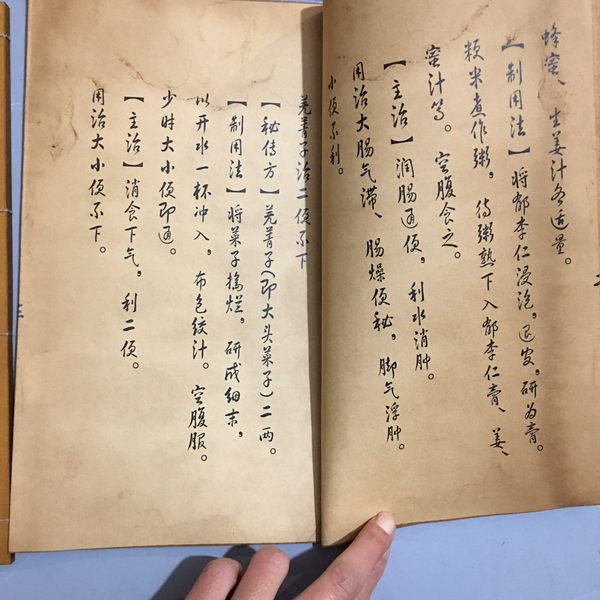 蜂蜜、生姜汁各适量。
【制用法】将郁李仁浸泡,退皮,研为膏。
粳米煮作粥,待粥熟下入郁李仁膏、姜、
蜜汁等。空腹食之。
【主治】润肠通便,利水消肿。
用治大肠气滞、肠燥便秘,脚气浮肿。
小便不利。
芜菁子治二便不下
【秘传方】芜菁子(即大头菜子)二两。
【制用法】将菜子捣烂,研成细末,
以开水一杯冲入,布包绞汁。空腹服。
少时大小便即通。
【主治】消食下气,利二便。
用治大小便不下。